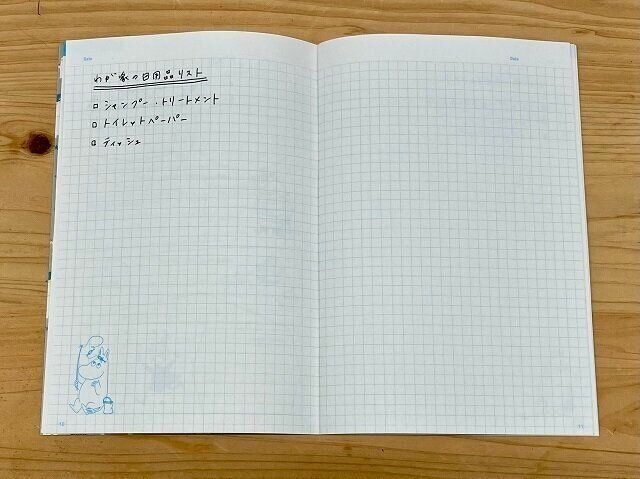 Date
Date
わが家の日用品リスト
□ シャンプー・トリートメント
□ トイレットペーパー
□ ティッシュ
10
11